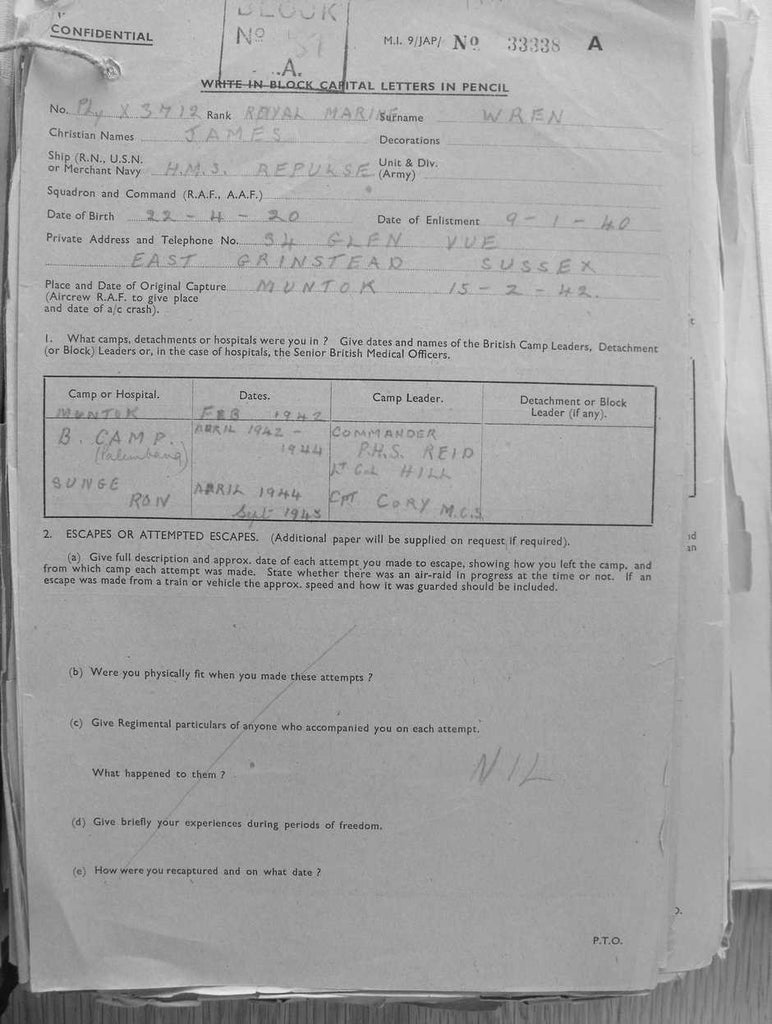 CONFIDENTIAL
BLOCK
Nº 57
A.
M.I. 9/JAP/ Nº 33338 A
WRITE IN BLOCK CAPITAL LETTERS IN PENCIL
No. Ply X 3712 Rank ROYAL MARINE Surname WREN
Christian Names JAMES Decorations
Ship (R.N., U.S.N. or Merchant Navy H.M.S. REPULSE Unit & Div. (Army)
Squadron and Command (R.A.F., A.A.F.)
Date of Birth 22-4-20 Date of Enlistment 9-1-40
Private Address and Telephone No. 34 GLEN VUE
EAST GRINSTEAD SUSSEX
Place and Date of Original Capture MUNTOK 15-2-42.
(Aircrew R.A.F. to give place
and date of a/c crash).
1. What camps, detachments or hospitals were you in ? Give dates and names of the British Camp Leaders, Detachment
(or Block) Leaders or, in the case of hospitals, the Senior British Medical Officers.
Camp or Hospital. Dates. Camp Leader. Detachment or Block
Leader (if any).
MUNTOK FEB 1942
B. CAMP. APRIL 1942 - COMMANDER
(Palembang) 1944 P.H.S. REID
LT Col HILL
SUNGE APRIL 1944 CPT CORY M.C.S
RON Sept 1945
2. ESCAPES OR ATTEMPTED ESCAPES. (Additional paper will be supplied on request if required).
(a) Give full description and approx. date of each attempt you made to escape, showing how you left the camp, and
from which camp each attempt was made. State whether there was an air-raid in progress at the time or not. If an
escape was made from a train or vehicle the approx. speed and how it was guarded should be included.
(b) Were you physically fit when you made these attempts ?
(c) Give Regimental particulars of anyone who accompanied you on each attempt.
What happened to them ?
NIL
(d) Give briefly your experiences during periods of freedom.
(e) How were you recaptured and on what date ?
P.T.O.